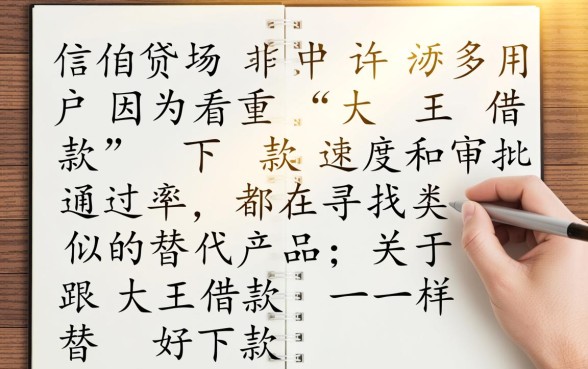 信伯贷场 非中 许 多用
户 因为看重 “大 王 借
款” 下 款 速度和审批
通过率，都在寻找类
似的替代产品；关于
跟 大王借款 一一样
替 好下款